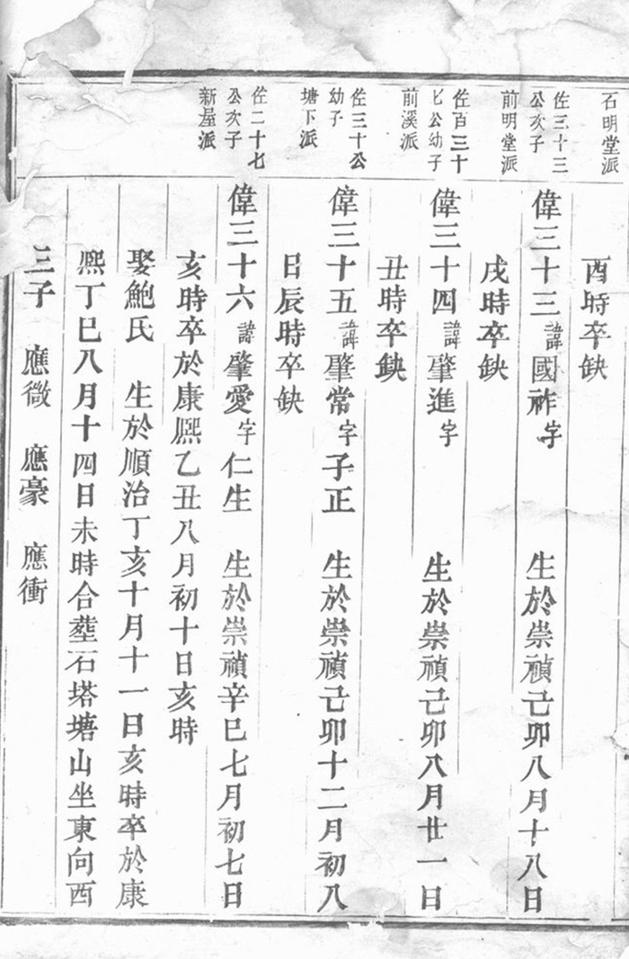 石明堂派
酉時卒缺
佐三十三
公次子
前明堂派
偉三十三諱國祚字 生於崇禎己卯八月十八日
戌時卒缺
佐百三十
七公幼子
前溪派
偉三十四諱肇進字 生於崇禎己卯八月廿一日
丑時卒缺
佐三十公
幼子
塘下派
偉三十五諱肇常字子正 生於崇禎己卯十二月初八
日辰時卒缺
佐二十七
公次子
新屋派
偉三十六諱肇愛字仁生 生於崇禎辛巳七月初七日
亥時卒於康熙乙丑八月初十日亥時
娶鮑氏 生於順治丁亥十月十一日亥時卒於康
熙丁巳八月十四日未時合塟石塔塘山坐東向西
三子 應徵 應豪 應衝